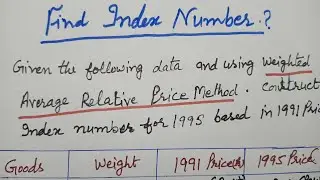 Find Index Number.?
Given the following data and using Weighted
Average Relative Price Method. Construct
Index number for 1995 based in 1991 Pric
Goods Weight 1991 Price 1995 Price